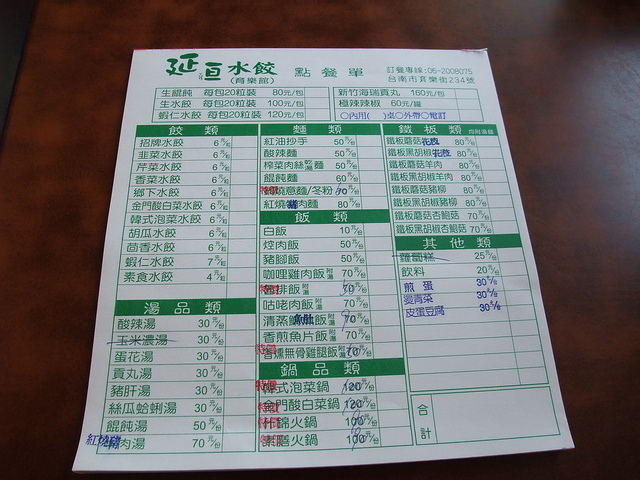 延亘水餃
(育樂館)
點餐單
訂餐專線:06-2008075
台南市育樂街234號
生餛飩 每包20粒裝 80元/包
生水餃 每包20粒裝 100元/包
蝦仁水餃 每包20粒裝 120元/包
新竹海瑞貢丸 160元/包
極辣辣椒 60元/罐
○內用( )桌○外帶○電訂
餃類
招牌水餃 6元/粒
韭菜水餃 6元/粒
芹菜水餃 6元/粒
香菜水餃 6元/粒
鄉下水餃 6元/粒
金門酸白菜水餃 6元/粒
韓式泡菜水餃 6元/粒
胡瓜水餃 6元/粒
茴香水餃 6元/粒
蝦仁水餃 7元/粒
素食水餃 4元/粒
湯品類
酸辣湯 30元/份
玉米濃湯 30元/份
蛋花湯 30元/份
貢丸湯 30元/份
豬肝湯 30元/份
絲瓜蛤蜊湯 30元/份
餛飩湯 50元/份
紅燒豬肉湯 70元/份
麵類
紅油抄手 50元/份
酸辣麵 50元/份
榨菜肉絲乾湯麵 50元/份
餛飩麵 60元/份
特價 燒意麵/冬粉 70元/份
紅燒豬肉麵 80元/份
飯類
白飯 10元/份
焢肉飯 50元/份
豬腳飯 50元/份
咖哩雞肉飯附湯 70元/份
特價 排飯附湯 70元/份
咕咾肉飯附湯 70元/份
清蒸魚肚飯附湯 70元/份
香煎魚片飯附湯 70元/份
特價 香燻無骨雞腿飯附湯 70元/份
鍋品類
特價 韓式泡菜鍋 120元/份
特價 金門酸白菜鍋 120元/份
特價 什錦火鍋 100元/份
特價 素膳火鍋 100元/份
鐵板類 均附湯麵
鐵板蘑菇花枝 80元/份
鐵板黑胡椒花枝 80元/份
鐵板蘑菇羊肉 80元/份
鐵板黑胡椒羊肉 80元/份
鐵板蘑菇豬柳 80元/份
鐵板黑胡椒豬柳 80元/份
鐵板蘑菇杏鮑菇 70元/份
鐵板黑胡椒杏鮑菇 70元/份
其他類
蘿蔔糕 25元/份
飲料 20元/份
煎蛋 30元/份
燙青菜 30元/份
皮蛋豆腐 30元/份
合計